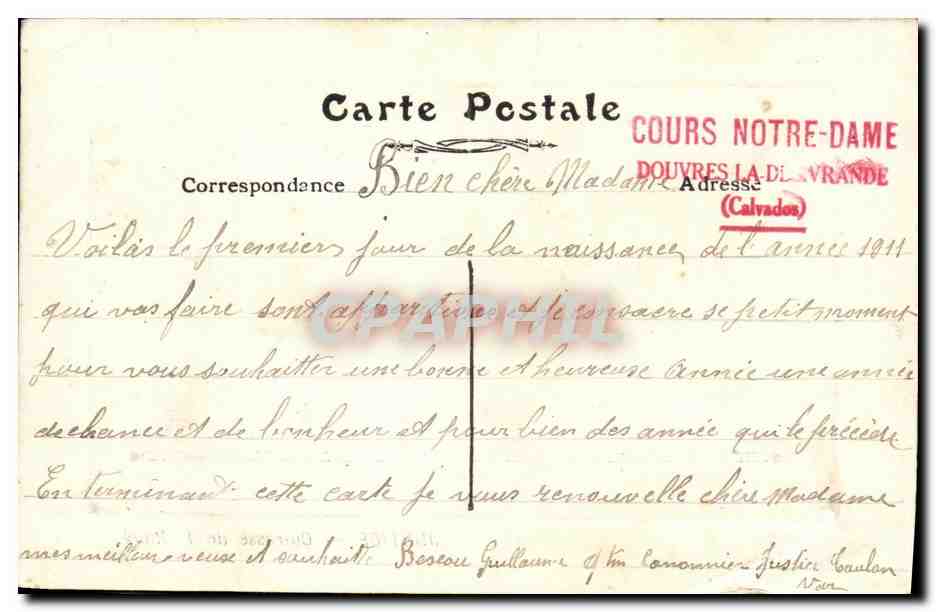 Carte Postale
COURS NOTRE-DAME
DOUVRES LA-DÉLIVRANDE
(Calvados)
Correspondance Bien chère Madame Adresse
Voilas le premier jour de la naissance de l'année 1911
qui vas faire sont appartives et je consacre se petit moment
pour vous souhaitter une bonne et heureuse année une année
de chance et de bonheur et pour bien des année qui le précède
En terminant cette carte je vous renouvelle chère Madame
mes meilleur veuse et souhaitte Guillaume Canonnier Justice Toulon
Var
CPAPHIL